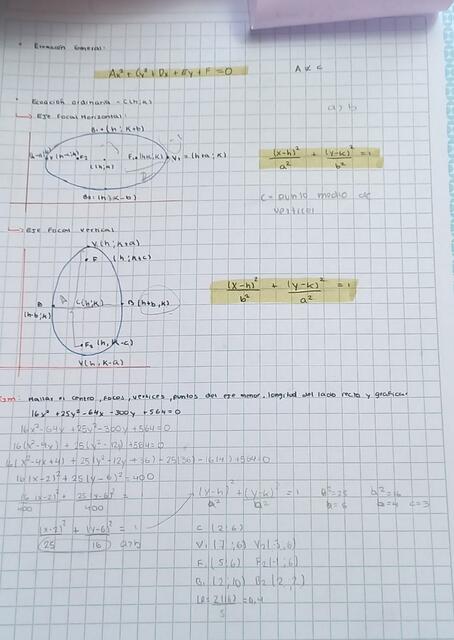 Ecuación General:
Ax² + Cy² + Dx + Ey + F = 0
A ≠ C
Ecuación ordinaria - C(h;k)
a > b
Eje Focal Horizontal
B₁ = (h; k+b)
F₁(h+c;k) V₁ = (h+a; k)
C(h;k)
B₂ = (h; k-b)
(x-h)²/a² + (y-k)²/b² = 1
C = punto medio de
vértices
Eje Focal Vertical
V(h; k+a)
F (h; k+c)
B C(h;k) B (h+b, k)
(h-b;k)
F₂ (h, k-c)
V(h, k-a)
(x-h)²/b² + (y-k)²/a² = 1
Ejm: Hallar el centro, focos, vertices, puntos del eje menor, longitud del lado recto y graficar
16x² + 25y² - 64x - 300y + 564 = 0
16x² - 64x + 25y² - 300y + 564 = 0
16(x² - 4x) + 25(y² - 12y) + 564 = 0
16(x² - 4x + 4) + 25(y² - 12y + 36) - 25(36) - 16(4) + 564 = 0
16(x-2)² + 25(y-6)² = 400
16(x-2)²/400 + 25(y-6)²/400 =
(x-2)²/25 + (y-6)²/16 = 1 a>b
(x-h)²/a² + (y-k)²/b² = 1
a² = 25 b² = 16
a = 5 b = 4 c = 3
C (2;6)
V₁ (7;6) V₂ (-3;6)
F₁ (5;6) F₂ (-1;6)
B₁ (2;10) B₂ (2;2)
LR = 2(16)/5 = 6,4